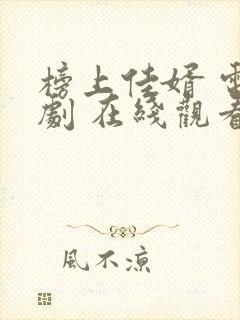 榜上佳婿 電
劇 在綫觀看
風不涼